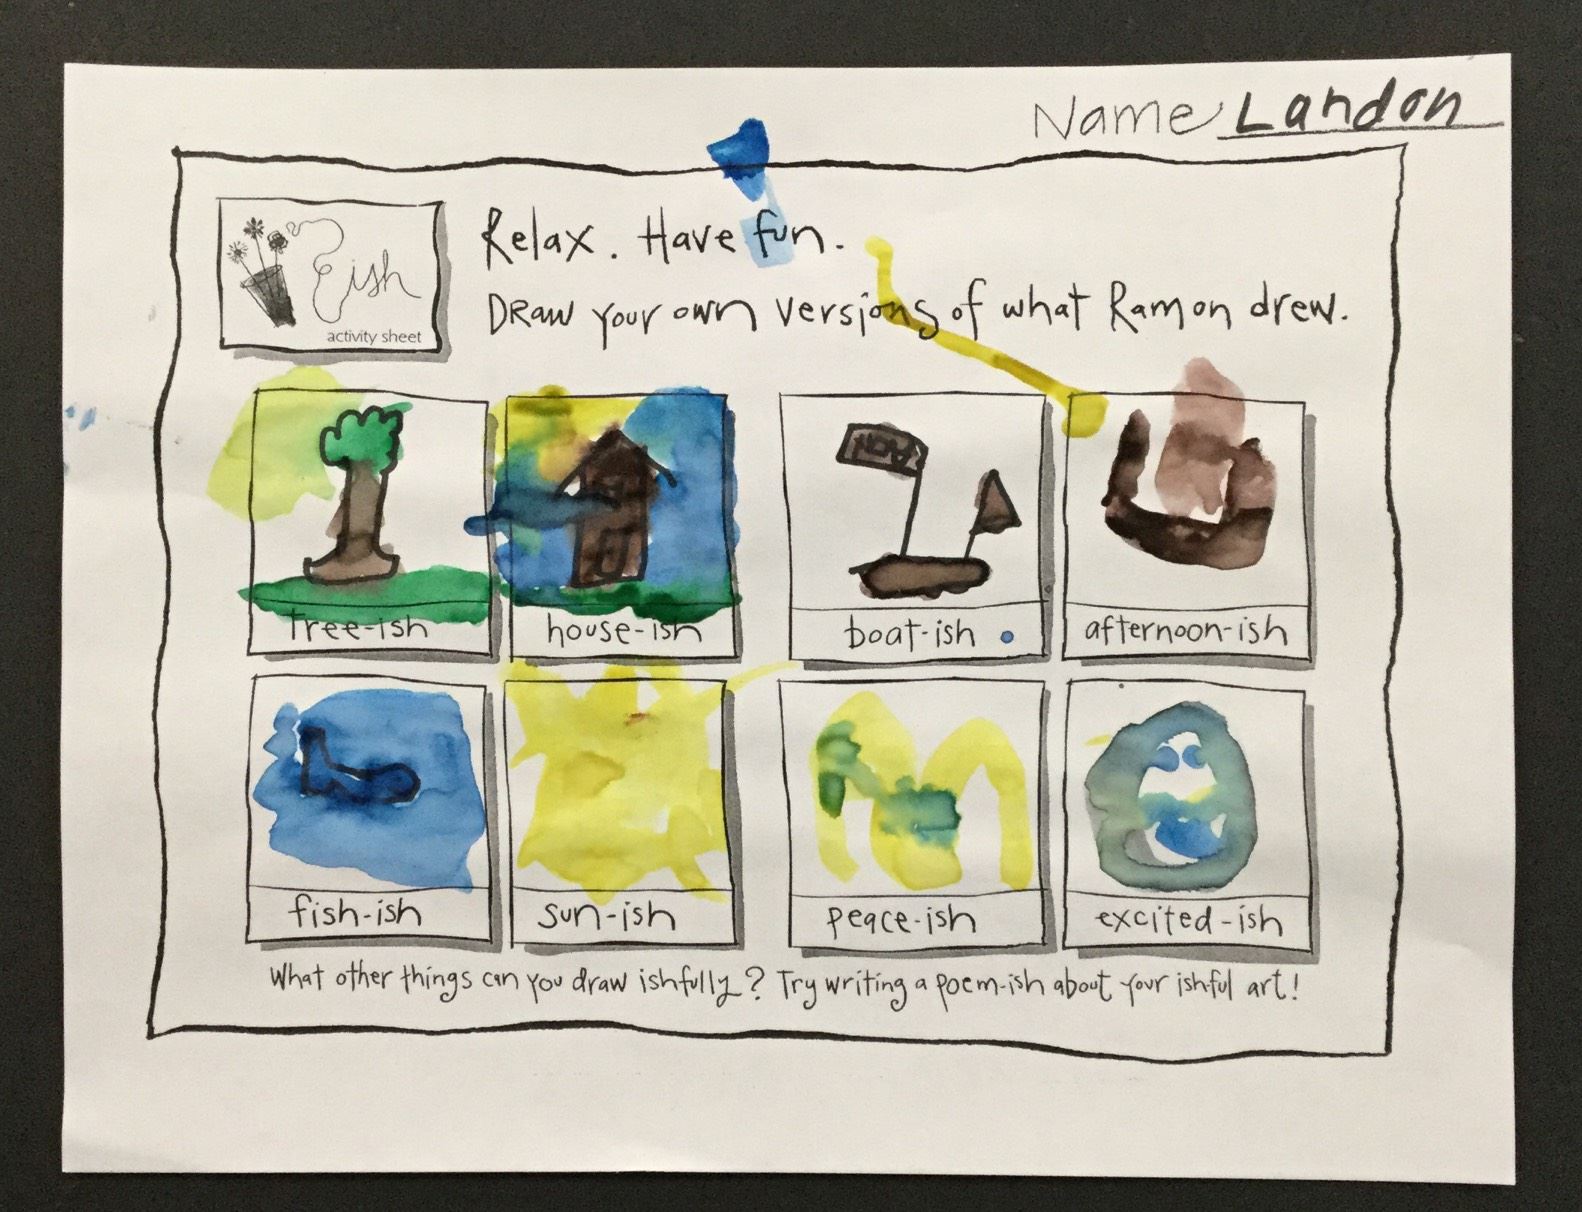 Name Landon
ish
activity sheet
Relax. Have fun.
Draw your own versions of what Ramon drew.
tree-ish
house-ish
boat-ish
afternoon-ish
fish-ish
sun-ish
peace-ish
excited-ish
What other things can you draw ishfully? Try writing a poem-ish about your ishful art!